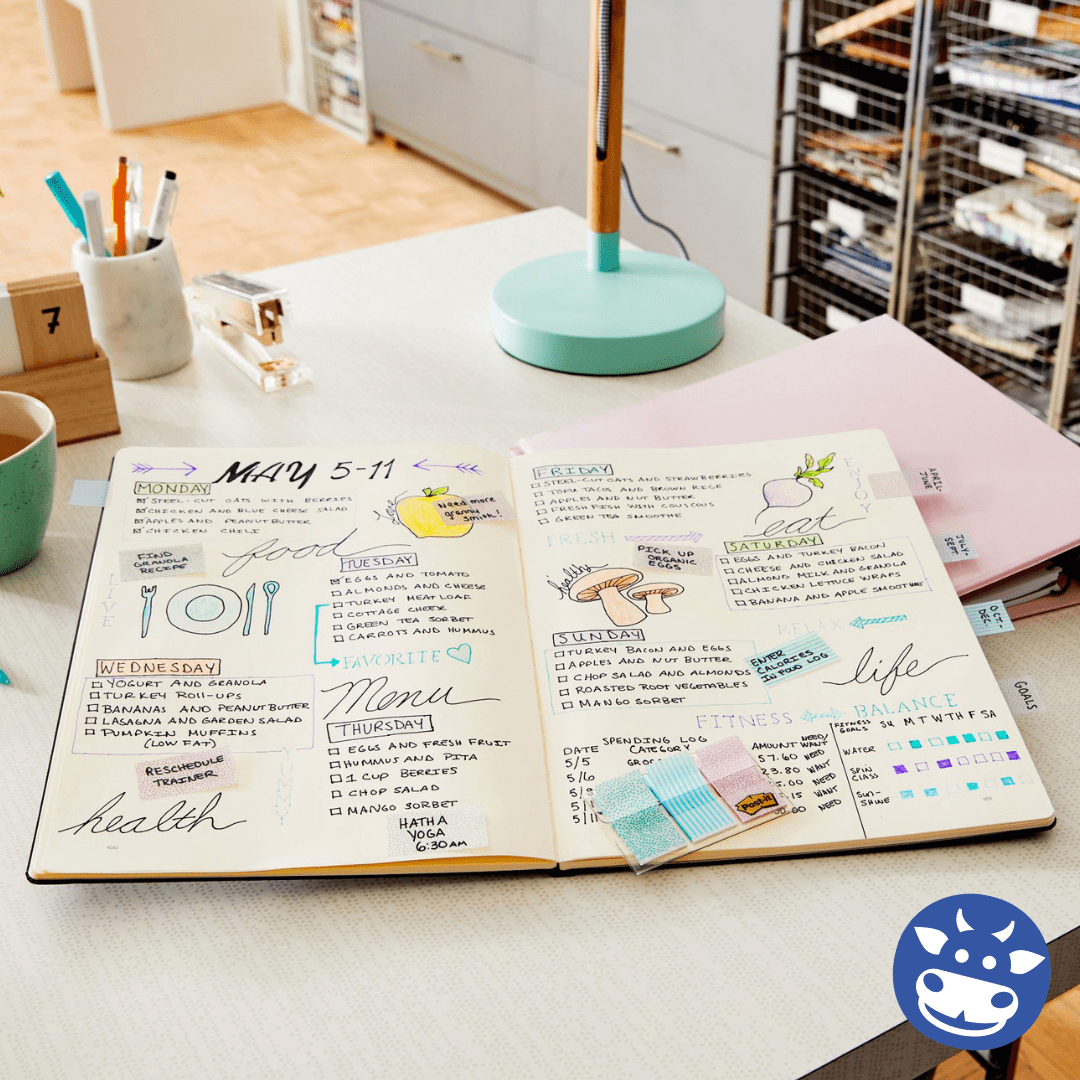 7
MAY 5-11
MONDAY
STEEL-CUT OATS WITH BERRIES
CHICKEN AND BLUE CHEESE SALAD
APPLES AND PEANUT BUTTER
CHICKEN CHILI
Need more
granny
smith!
FIND
GRANOLA
RECIPE
food
LIVE
TUESDAY
EGGS AND TOMATO
ALMONDS AND CHEESE
TURKEY MEATLOAF
COTTAGE CHEESE
GREEN TEA SORBET
CARROTS AND HUMMUS
FAVORITE
WEDNESDAY
YOGURT AND GRANOLA
TURKEY ROLL-UPS
BANANAS AND PEANUT BUTTER
LASAGNA AND GARDEN SALAD
PUMPKIN MUFFINS
(LOW FAT)
RESCHEDULE
TRAINER
health
YUMMY
Menu
THURSDAY
EGGS AND FRESH FRUIT
HUMMUS AND PITA
1 CUP BERRIES
CHOP SALAD
MANGO SORBET
HATHA
YOGA
6:30 AM
100
FRIDAY
STEEL-CUT OATS AND STRAWBERRIES
TOFU TACOS AND BROWN RICE
APPLES AND NUT BUTTER
FRESH FISH WITH COUSCOUS
GREEN TEA SMOOTHIE
FRESH
PICK UP
ORGANIC
EGGS
healthy
eat
ENJOY
SATURDAY
EGGS AND TURKEY BACON
CHEESE AND CHICKEN SALAD
ALMOND MILK AND GRANOLA
CHICKEN LETTUCE WRAPS
BANANA AND APPLE SMOOTHIE
RELAX
SUNDAY
TURKEY BACON AND EGGS
APPLES AND NUT BUTTER
CHOP SALAD AND ALMONDS
ROASTED ROOT VEGETABLES
MANGO SORBET
ENTER
CALORIES
IN FOOD LOG
life
FITNESS BALANCE
SPENDING LOG
DATE CATEGORY AMOUNT NEED/WANT
5/5 57.60 NEED
5/6 23.80 WANT
NEED
WANT
NEED
Post-it
FITNESS
GOALS
SU M T W TH F SA
WATER
SPIN
CLASS
SUN-
SHINE
APRIL-
JUNE
JULY
SEPT.
OCT-
DEC.
GOALS